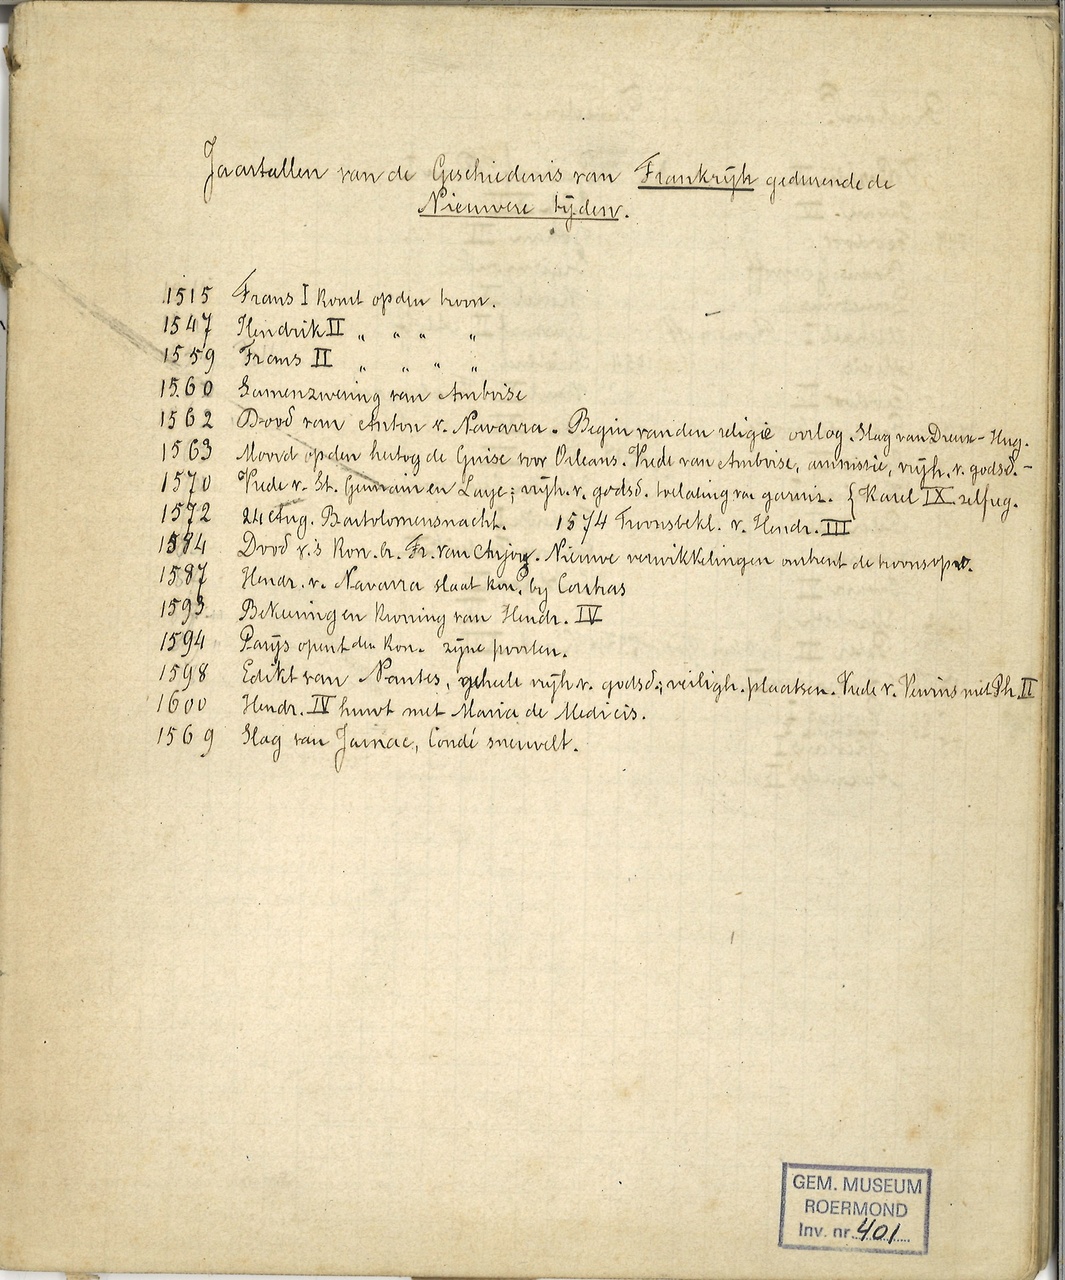 Jaartallen van de Geschiedenis van Frankrijk gedurende de
Nieuwere tijden.
1515 Frans I komt op den troon.
1547 Hendrik II „ „ „ „
1559 Frans II „ „ „ „
1560 Samenzwering van Amboise
1562 Dood van Anton v. Navarra. Begin van den religie oorlog. Slag van Dreux - Hug.
1563 Moord op den hertog de Guise voor Orleans. Vrede van Amboise, amnistie, vrijh. v. godsd. -
1570 Vrede v. St. Germain en Laye; vrijh. v. godsd. toelating van garniz. { Karel IX zelfreg.
1572 24 Aug. Bartolomeusnacht. 1574 Troonsbekl. v. Hendr. III
1584 Dood v.'s Kon. br. Fr. van Anjou. Nieuwe verwikkelingen omtrent de troonsopv.
1587 Hendr. v. Navarra slaat kon. by Coutras
1593 Bekeering en kroning van Hendr. IV
1594 Parijs opent den Kon. zijne poorten.
1598 Edikt van Nantes, geheele vrijh. v. godsd.; veiligh. plaatsen. Vrede v. Vervins met Ph. II
1600 Hendr. IV huwt met Maria de Medicis.
1569 Slag van Jarnac, Condé sneuvelt.
GEM. MUSEUM
ROERMOND
Inv. nr. 401